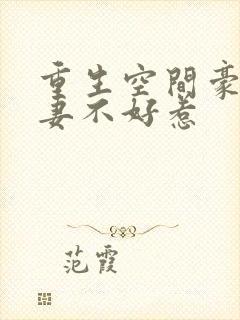 重生空間豪
妻不好惹
范霞